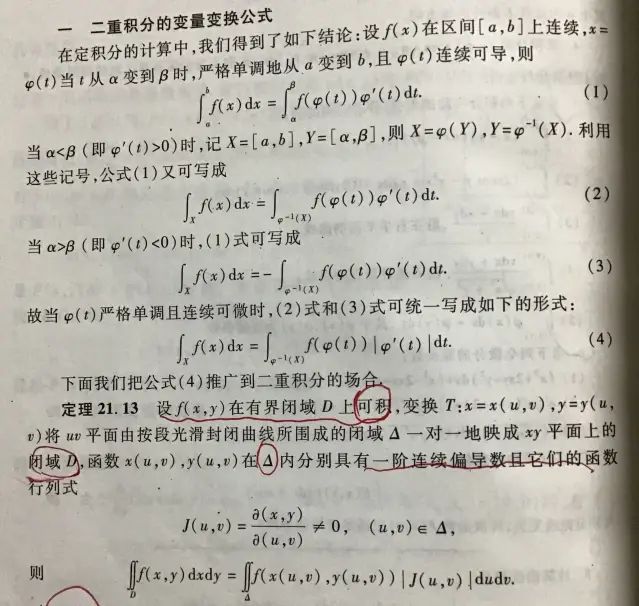 一 二重积分的变量变换公式
在定积分的计算中,我们得到了如下结论:设f(x)在区间[a,b]上连续,x=
φ(t)当t从α变到β时,严格单调地从a变到b,且φ(t)连续可导,则
∫_a^b f(x)dx=∫_α^β f(φ(t))φ′(t)dt. (1)
当α<β(即φ′(t)>0)时,记X=[a,b],Y=[α,β],则X=φ(Y),Y=φ⁻¹(X).利用
这些记号,公式(1)又可写成
∫_X f(x)dx=∫_{φ⁻¹(X)} f(φ(t))φ′(t)dt. (2)
当α>β(即φ′(t)<0)时,(1)式可写成
∫_X f(x)dx=-∫_{φ⁻¹(X)} f(φ(t))φ′(t)dt. (3)
故当φ(t)严格单调且连续可微时,(2)式和(3)式可统一写成如下的形式:
∫_X f(x)dx=∫_{φ⁻¹(X)} f(φ(t))|φ′(t)|dt. (4)
下面我们把公式(4)推广到二重积分的场合.
定理21.13 设f(x,y)在有界闭域D上可积,变换T:x=x(u,v),y=y(u,
v)将uv平面由按段光滑封闭曲线所围成的闭域Δ一对一地映成xy平面上的
闭域D,函数x(u,v),y(u,v)在Δ内分别具有一阶连续偏导数且它们的函数
行列式
J(u,v)=∂(x,y)/∂(u,v)≠0, (u,v)∈Δ,
则 ∬_D f(x,y)dxdy=∬_Δ f(x(u,v),y(u,v))|J(u,v)|dudv.